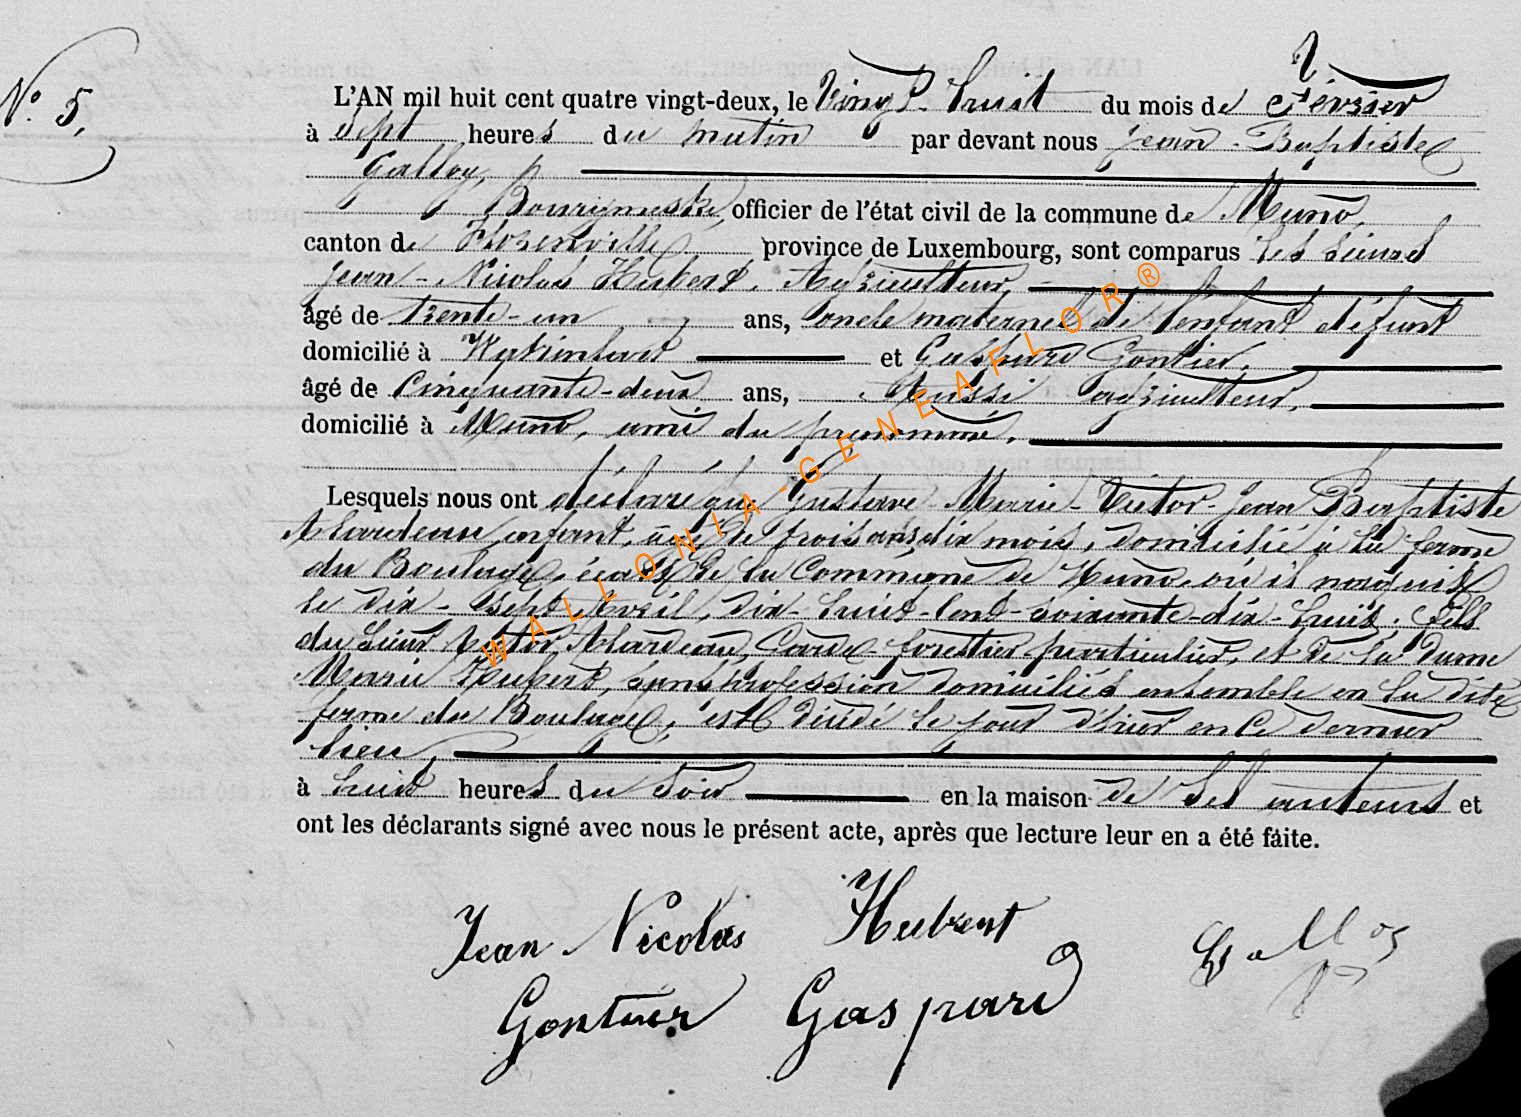 N° 5,
L'AN mil huit cent quatre vingt-deux, le Vingt-huit du mois de Février
à sept heures du matin par devant nous Jean-Baptiste
Galloy,
Bourgmestre, officier de l'état civil de la commune de Muno,
canton de Florenville province de Luxembourg, sont comparus les sieurs
Jean-Nicolas Hubert, Agriculteur,
âgé de trente-un ans, oncle maternel de l'enfant défunt
domicilié à et Gaspard Gontier,
âgé de Cinquante-deux ans, Aussi agriculteur,
domicilié à Muno, ami du prénommé.
Lesquels nous ont déclaré que Gustave-Marie-Victor-Jean Baptiste
enfant, âgé de trois ans, dix mois, domicilié à la ferme
du Boulage, écart de la Commune de Muno où il naquit
le dix-sept Avril, dix-huit-cent-soixante-dix-huit, fils
du sieur Victor Garde forestier particulier, et de la dame
Marie Hubert, sans profession domiciliés ensemble en la dite
ferme du Boulage, est décédé le jour d'hier en ce dernier
lieu,
à huit heures du soir en la maison de ses auteurs et
ont les déclarants signé avec nous le présent acte, après que lecture leur en a été faite.
Jean Nicolas Hubert Galloy
Gontier Gaspard
WALLONIA-GENEAFLOR®